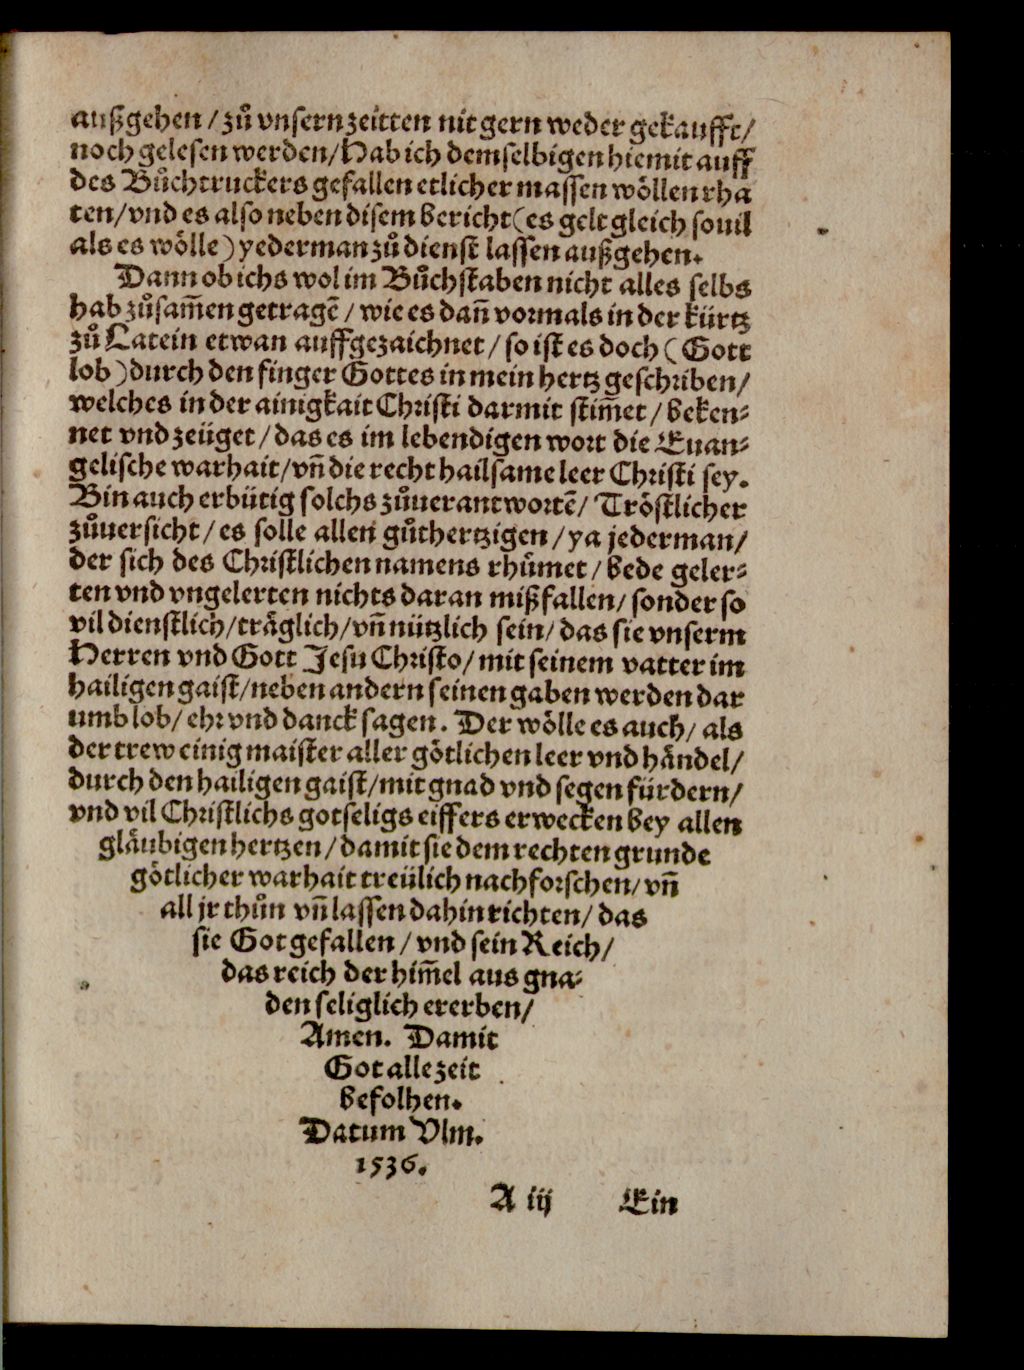 außgehen / zuͦ vnsern zeitten nit gern weder gekaufft /
noch gelesen werden / Hab ich demselbigen hiemit auff
des Buͦchtruckers gefallen etlicher massen woͤllen rha
ten / vnd es also neben disem bericht (es gelt gleich souil
als es woͤlle) yederman zuͦ dienst lassen außgehen.
Dann ob ichs wol im Buͦchstaben nicht alles selbs
hab zuͦsam̃en getragẽ / wie es dañ vormals in der kürtz
zuͦ Latein etwan auffgezaichnet / so ist es doch (Gott
lob) durch den finger Gottes in mein hertz geschriben /
welches in der ainigkait Christi darmit stim̃et / beken⸗
net vnd zeüget / das es im lebendigen wort die Euan⸗
gelische warhait / vñ die recht hailsame leer Christi sey.
Bin auch erbütig solchs zuͦuerantwortẽ / Tröstlicher
zuͦuersicht / es solle allen guͦthertzigen / ya jederman /
der sich des Christlichen namens rhuͤmet / bede geler⸗
ten vnd vngelerten nichts daran mißfallen / sonder so
vil dienstlich / traͤglich / vñ nützlich sein / das sie vnserm
Herren vnd Gott Jesu Christo / mit seinem vatter im
hailigen gaist / neben andern seinen gaben werden dar
umb lob / ehr vnd danck sagen. Der woͤlle es auch / als
der trew einig maister aller goͤtlichen leer vnd haͤndel /
durch den hailigen gaist / mit gnad vnd segen fürdern /
vnd vil Christlichs gotseligs eiffers erwecken bey allen
glaͤubigen hertzen / damit sie dem rechten grunde
goͤtlicher warhait treülich nachforschen / vñ
all jr thuͦn vñ lassen dahin richten / das
sie Got gefallen / vnd sein Reich /
das reich der him̃el aus gna⸗
den seliglich ererben /
Amen. Damit
Got alle zeit
befolhen.
Datum Vlm.
1536.
A iij Ein